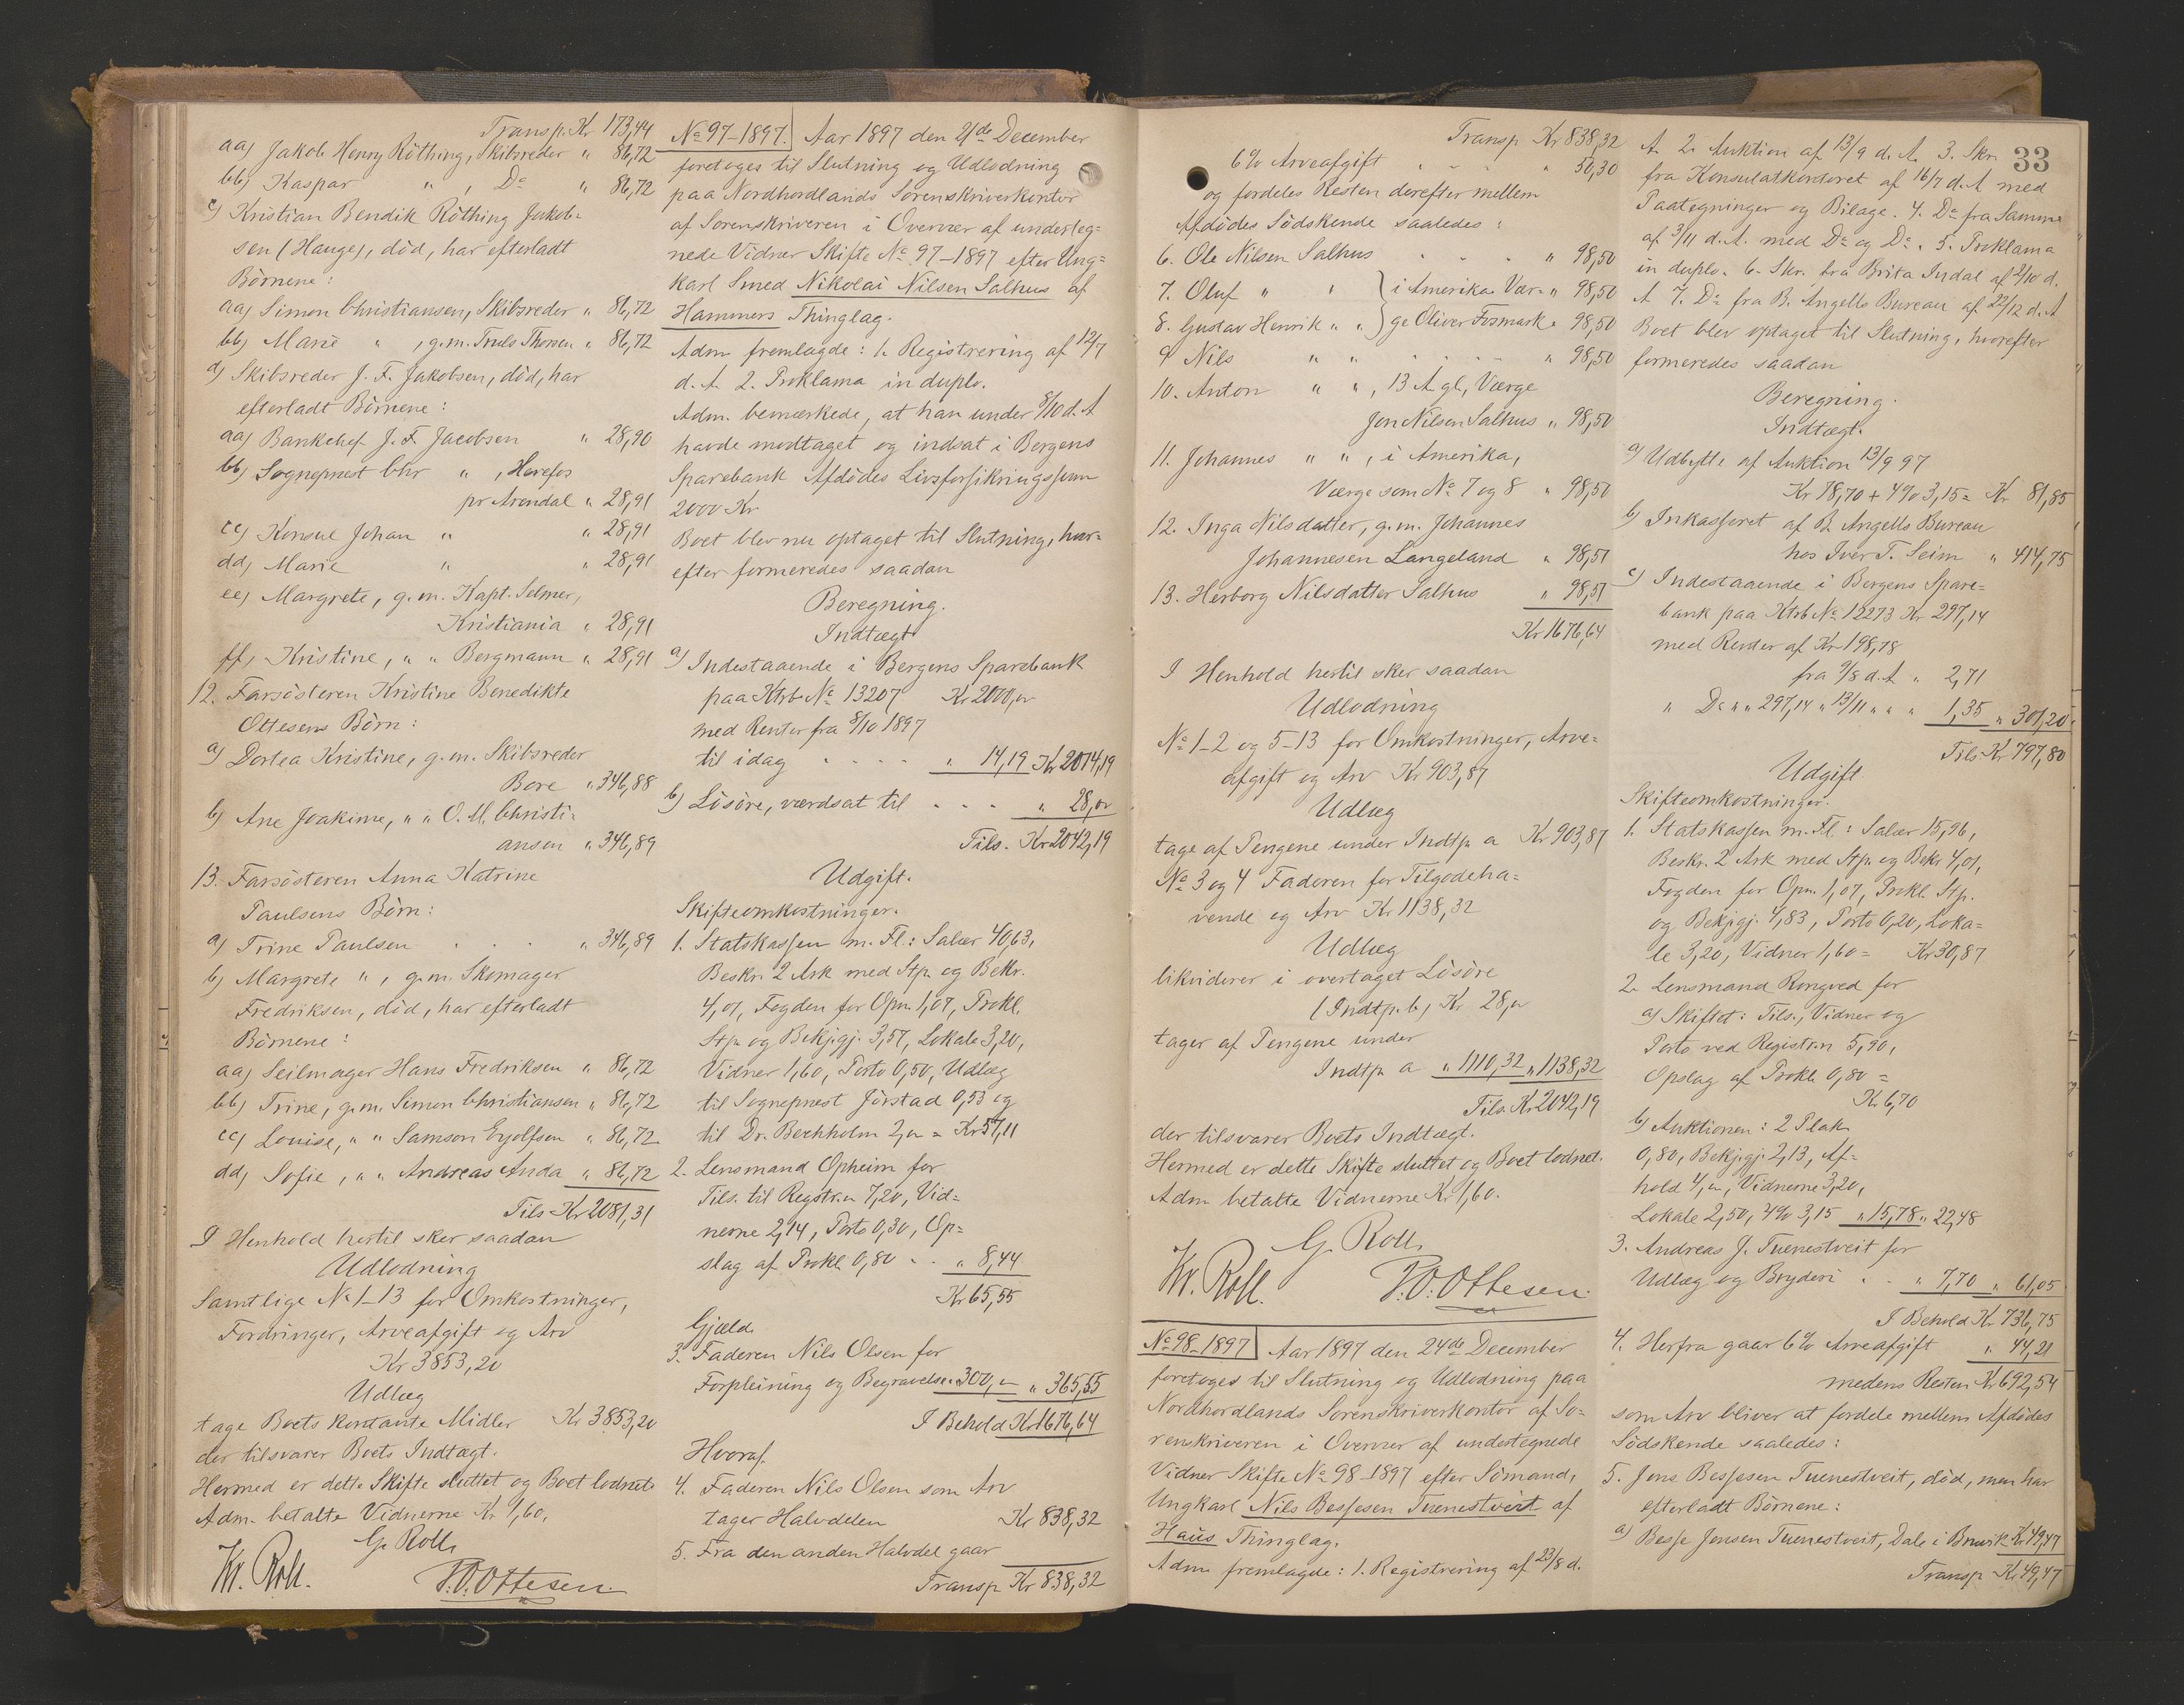 Transp. Kr 173,44
aa) Jakob Henry Röthing, Skibsreder " 86,72
bb) Kaspar " , Do " 86,72
c) Kristian Bendik Röthing Jakob-
sen (Hauge), död, har efterladt
Börnene:
aa) Simon Christiansen, Skibsreder " 86,72
bb) Marie " , g.m. Truls Thorsen " 86,72
d) Skibsreder J. F. Jakobsen, död, har
efterladt Börnene:
aa) Bankchef J. F. Jacobsen " 28,90
bb) Sogneprest Chr " , Herefos
pr Arendal " 28,91
cc) Konsul Johan " " 28,91
dd) Marie " " 28,91
ee) Margrete, g.m. Kapt. Selmer,
Kristiania " 28,91
ff) Kristine, " " Bergmann " 28,91
12. Farsösteren Kristine Benedikte
Ottesens Börn:
a) Dortea Kristine, g.m. Skibsreder
Bore " 346,88
b) Ane Joakime, " " O. M. Christi-
ansen " 346,89
13. Farsösteren Anna Katrine
Paulsens Börn:
a) Trine Paulsen . . . " 346,89
b) Margrete " , g.m. Skomager
Fredriksen, död, har efterladt
Börnene:
aa) Seilmager Hans Fredriksen " 86,72
bb) Trine, g.m. Simon Christiansen " 86,72
cc) Louise, " " Samson Eyolfsen " 86,72
dd) Sofie, " " Andreas Anda " 86,72
Tils. Kr 2081,31
I Henhold hertil sker saadan
Udlodning
Samtlige No 1-13 for Omkostninger,
Fordringer, Arveafgift og Arv
Kr 3853,20
Udlæg
tage Boets kontante Midler Kr 3853,20
der tilsvarer Boets Indtægt.
Hermed er dette Skifte sluttet og Boet lodnet.
Adm. betalte Vidnerne Kr 1,60.
G. Roll.
Kr. Roll. P.O. Ottesen.
No 97-1897. Aar 1897 den 21de December
foretoges til Slutning og Udlodning
paa Nordhordlands Sorenskriverkontor
af Sorenskriveren i Overvær af underteg-
nede Vidner Skifte No 97-1897 efter Ung-
karl Smed Nikolai Nilsen Salhus af
Hammers Thinglag.
Adm fremlagde: 1. Registrering af 12/7
d. A. 2. Proklama in duplo.
Adm. bemærkede, at han under 8/10 d. A
havde modtaget og indsat i Bergens
Sparebank Afdödes Livsforsikringssum
2000 Kr
Boet blev nu optaget til Slutning, hvor-
efter formeredes saadan
Beregning.
Indtægt
a) Indestaaende i Bergens Sparebank
paa Ktrb No 13207 Kr 2000,00
med Renter fra 8/10 1897
til idag . . . . " 14,19 Kr 2014,19
b) Lösöre, værdsat til . . . " 28,00
Tils. Kr 2042,19
Udgift.
Skifteomkostninger.
1. Statskassen m. Fl.: Salær 40,63,
Beskr. 2 Ark med Stp. og Bekr.
4,01, Fogden for Opn. 1,07, Prokl.
Stp. og Bekj.gj. 3,57, Lokale 3,20,
Vidner 1,60, Porto 0,50, Udlæg
til Sogneprest Jörstad 0,53 og
til Dr. Bechholm 2,00 = Kr 57,11
2. Lensmand Opheim for
Tils. til Regstr.n 7,20, Vid-
nerne 2,14, Porto 0,30, Op-
slag af Prokl. 0,80 . . " 8,44
Kr 65,55
Gjæld.
3. Faderen Nils Olsen for
Forpleining og Begravelse " 300,00 " 365,55
I Behold Kr 1676,64
Hvoraf.
4. Faderen Nils Olsen som Arv
tager Halvdelen Kr 838,32
5. Fra den anden Halvdel gaar
Transp Kr 838,32
Transp Kr 838,32
6% Arveafgift . . . " 50,30
og fordeles Resten derefter mellem
Afdödes Södskende saaledes:
6. Ole Nilsen Salhus . . . " 98,50
7. Oluf " " } i Amerika. Vær- " 98,50
8. Gustav Henrik " " } ge Oliver Fosmark " 98,50
9 Nils " " . . . . " 98,50
10. Anton " " , 13 A. gl., Værge
Jon Nilsen Salhus " 98,50
11. Johannes " " , i Amerika,
Værge som No 7 og 8 " 98,50
12. Inga Nilsdatter, g.m. Johannes
Johannesen Langeland " 98,51
13. Herborg Nilsdatter Salhus " 98,51
Kr 1676,64
I Henhold hertil sker saadan
Udlodning
No 1-2 og 5-13 for Omkostninger, Arve-
afgift og Arv Kr 903,87
Udlæg
tage af Pengene under Indtp. a Kr 903,87
No 3 og 4 Faderen for Tilgodeha-
vende og Arv Kr 1138,32
Udlæg
likviderer i overtaget Lösöre
(Indtp. b) Kr 28,00
tager af Pengene under
Indtp. a " 1110,32 " 1138,32
Tils. Kr 2042,19
der tilsvarer Boets Indtægt.
Hermed er dette Skifte sluttet og Boet lodnet.
Adm betalte Vidnerne Kr 1,60.
G. Roll.
Kr. Roll. P.O. Ottesen.
No 98-1897 Aar 1897 den 24de December
foretoges til Slutning og Udlodning paa
Nordhordlands Sorenskriverkontor af So-
renskriveren i Overvær af undertegnede
Vidner Skifte No 98-1897 efter Sömand,
Ungkarl Nils Bessesen Tuenestveit af
Haus Thinglag.
Adm fremlagde: 1. Registrering af 23/8 d.
33
A. 2. Auktion af 13/9 d. A. 3. Skr.
fra Konsulatkontoret af 16/7 d. A. med
Paategninger og Bilage. 4. Do fra Samme
af 3/11 d. A. med Do og Do. 5. Proklama
in duplo. 6. Skr. fra Brita Indal af 2/10 d.
A. 7. Do fra B. Angells Bureau af 22/12 d. A
Boet blev optaget til Slutning, hvorefter
formeredes saadan
Beregning.
Indtægt.
a) Udbytte af Auktion 13/9 97
Kr 78,70 + 4% 3,15 = Kr 81,85
b) Inkasseret af B. Angells Bureau
hos Iver T. Seim " 414,75
c) Indestaaende i Bergens Spare-
bank paa Ktrb No 12273 Kr 297,14
med Renter af Kr 198,78
fra 9/8 d. A " 2,71
" Do " " 297,14 " 13/11 " " " 1,35 " 301,20
Tils Kr 797,80
Udgift.
Skifteomkostninger.
1. Statskassen m. Fl.: Salær 15,96,
Beskr. 2 Ark med Stp. og Bekr. 4,01,
Fogden for Opn. 1,07, Prokl. Stp.
og Bekj.gj. 4,83, Porto 0,20, Loka-
le 3,20, Vidner 1,60 = Kr 30,87
2. Lensmand Rongved for
a) Skiftet: Tils., Vidner og
Porto ved Registr.n 5,90,
Opslag af Prokl. 0,80 =
Kr 6,70
b) Auktionen: 2 Plak.
0,80, Bekj.gj. 2,13, Af-
hold 4,00, Vidnerne 3,20,
Lokale 2,50, 4% 3,15 " 15,78 " 22,48
3. Andreas J. Tuenestveit for
Udlæg og Bryderi . . " 7,70 " 61,05
I Behold Kr 736,75
4. Herfra gaar 6% Arveafgift " 44,21
medens Resten Kr 692,54
som Arv bliver at fordele mellem Afdödes
Södskende saaledes:
5. Jens Bessesen Tuenestveit, död, men har
efterladt Börnene:
a) Besse Jensen Tuenestveit, Dale i Bruvik Kr 49,47
Transp Kr 49,47